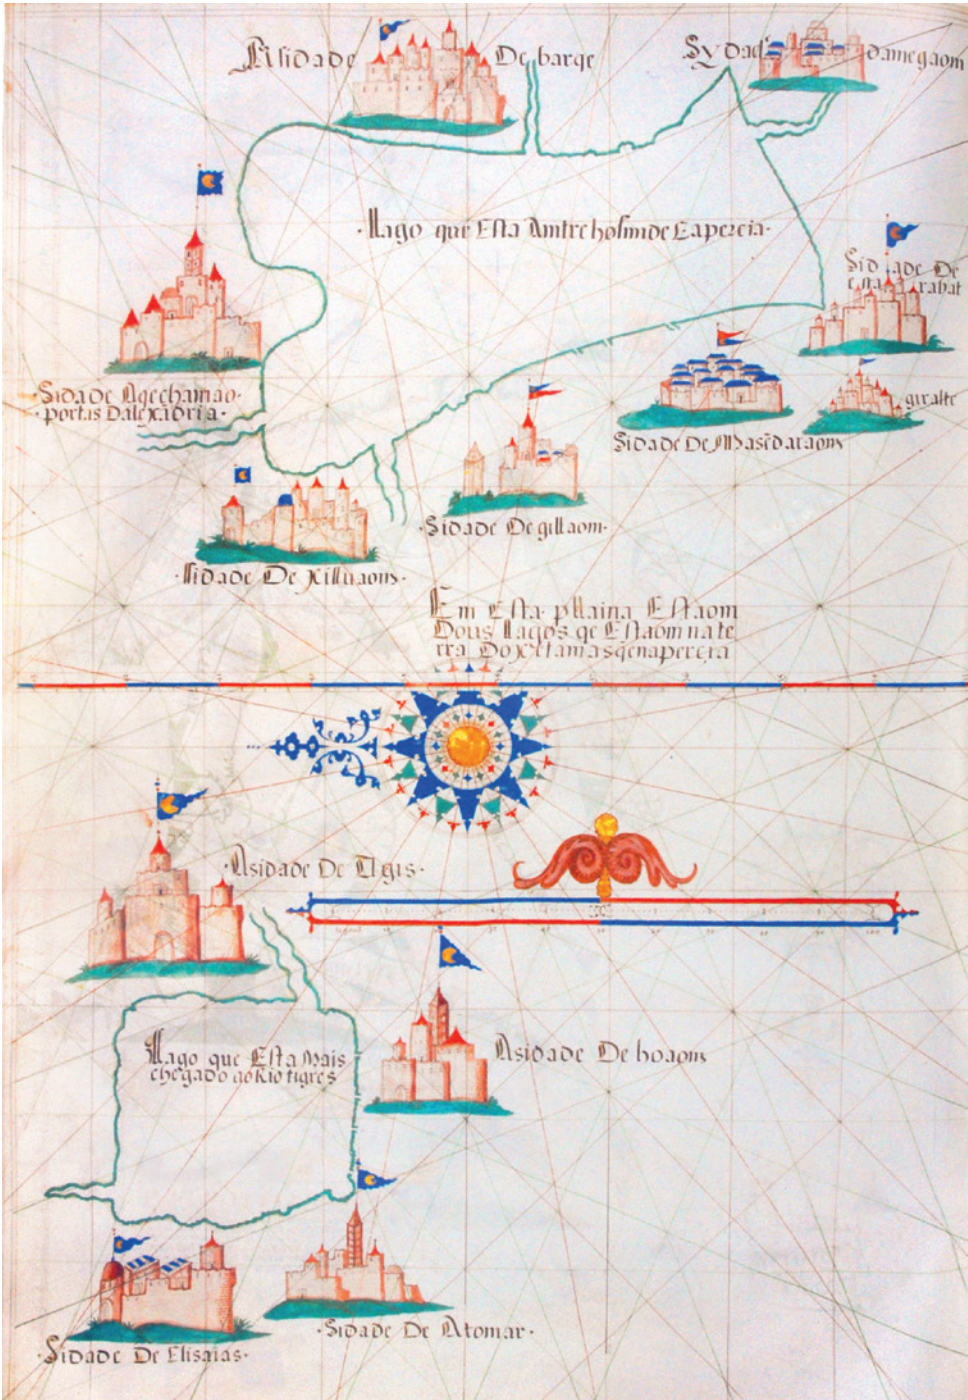 Assidade De barqe
Sydade damegaom
·llago que Esta Antre hosunide E apercia·
Sidade De
esta rabat
giralte
Sidade Aqechamão·
·portas Dalexãdria·
Sidade De Masẽdaraom
·Sidade De gillaom·
·sidade De xilluaom·
Em Esta· pllaina Estaom
Dous llagos qe Estaom na te
rra Do xetamas qe na percia
·Asidade De Tigis·
llago que Esta Mais
chegado ao Rio tigres
Asidade De hoaom
·Sidade De Atomar·
·Sidade De Elisaias·